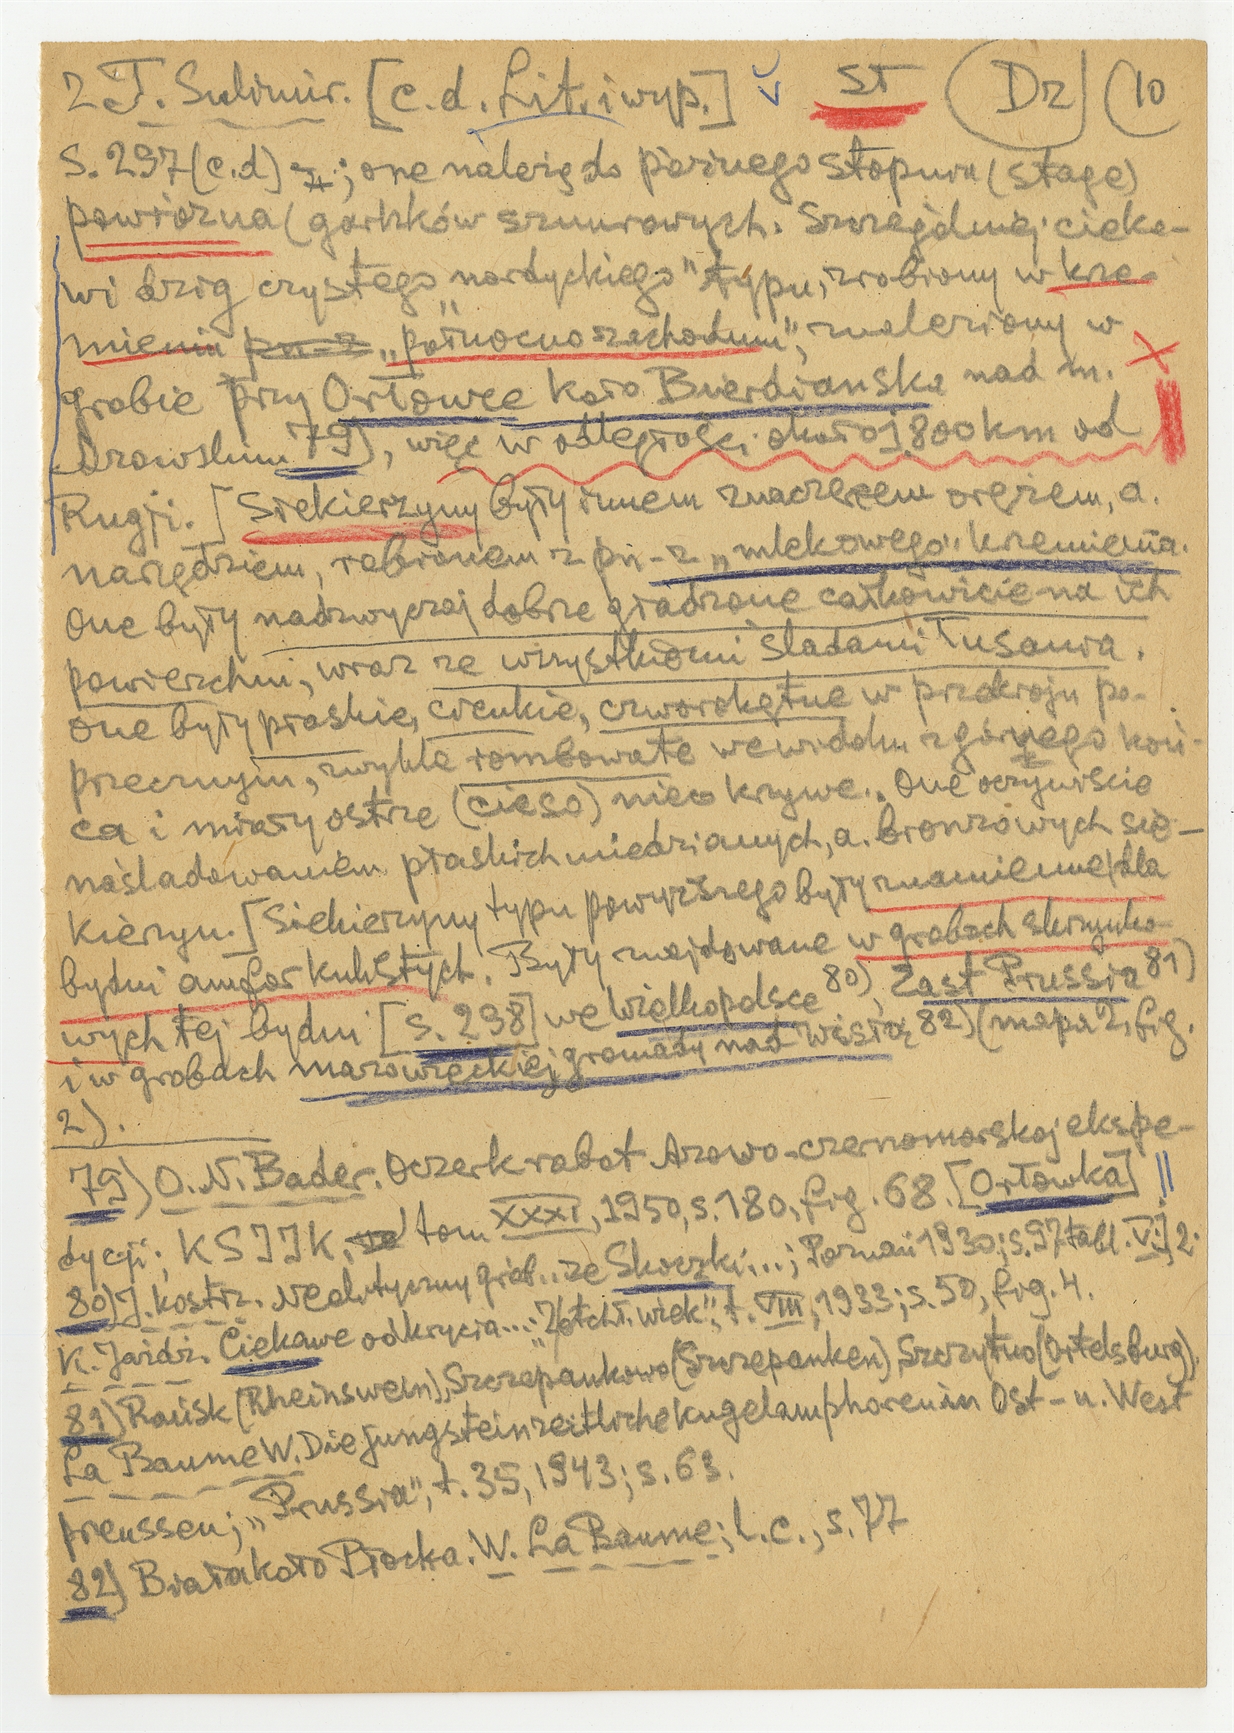 2 T. Sulimir. [c.d. Lit. i wyp.] ST Dz (10
S. 297 (c.d) ; one należą do późnego stopnia (stage)
powrozna (garnków sznurowych. Szczególniej cieka-
wi dzig czystego „nordyckiego" typu, zrobiony w krze-
mieniu pn-z „północno zachodnim", znaleziony w
grobie przy Orłowce koło Bierdianska nad m.
Azowskim 79), więc w odległości około 1800 km od
Rugji. [Siekierzyny były innem znaczącem orężem, a.
narzędziem, robionem z pn-z „mlekowego" krzemienia.
One były nadzwyczaj dobrze gładzone całkowicie na ich
powierzchni, wraz ze wszystkiemi śladami łusania.
One były płaskie, cienkie, czworokątne w przekroju po-
przecznym, zwykle rombowate we widoku z górnego koń-
ca i miały ostrze (cieso) nieco krzywe. One oczywiście
naśladowaniem płaskich miedzianych, a. bronzowych sie-
kierzyn. [Siekierzyny typu powyższego były znamienne dla
bydni amfor kulistych. Były znajdowane w grobach skrzynko-
wych tej bydni [s. 298] we Wielkopolsce 80), East Prussia 81)
i w grobach mazowieckiej gromady nad Wisłą 82) (mapa 2, fig.
2).
79) O. N. Bader. Oczerk rabot Azowo-czernomorskoj ekspe-
dycji; KSIIK, tom XXXI, 1950, s. 180, fig. 68. [Orłowka] !!
80) J. Kostrz. Neolityczny grób.. ze Skoczki...; Poznań 1930; s. 97 tabl. V:1, 2.
K. Jażdż. Ciekawe odkrycia...; „Z otchł. wiek", t. VIII, 1933; s. 50, fig. 4.
81) Rańsk (Rheinswein), Szczepankowo (Szczepanken), Szczytno (Ortelsburg).
La Baume W. Die jungsteinzeitliche Kugelamphoren in Ost- u. West
preussen; „Prussia", t. 35, 1943; s. 63.
82) Biała koło Płocka. W. La Baume; l.c., s. 77